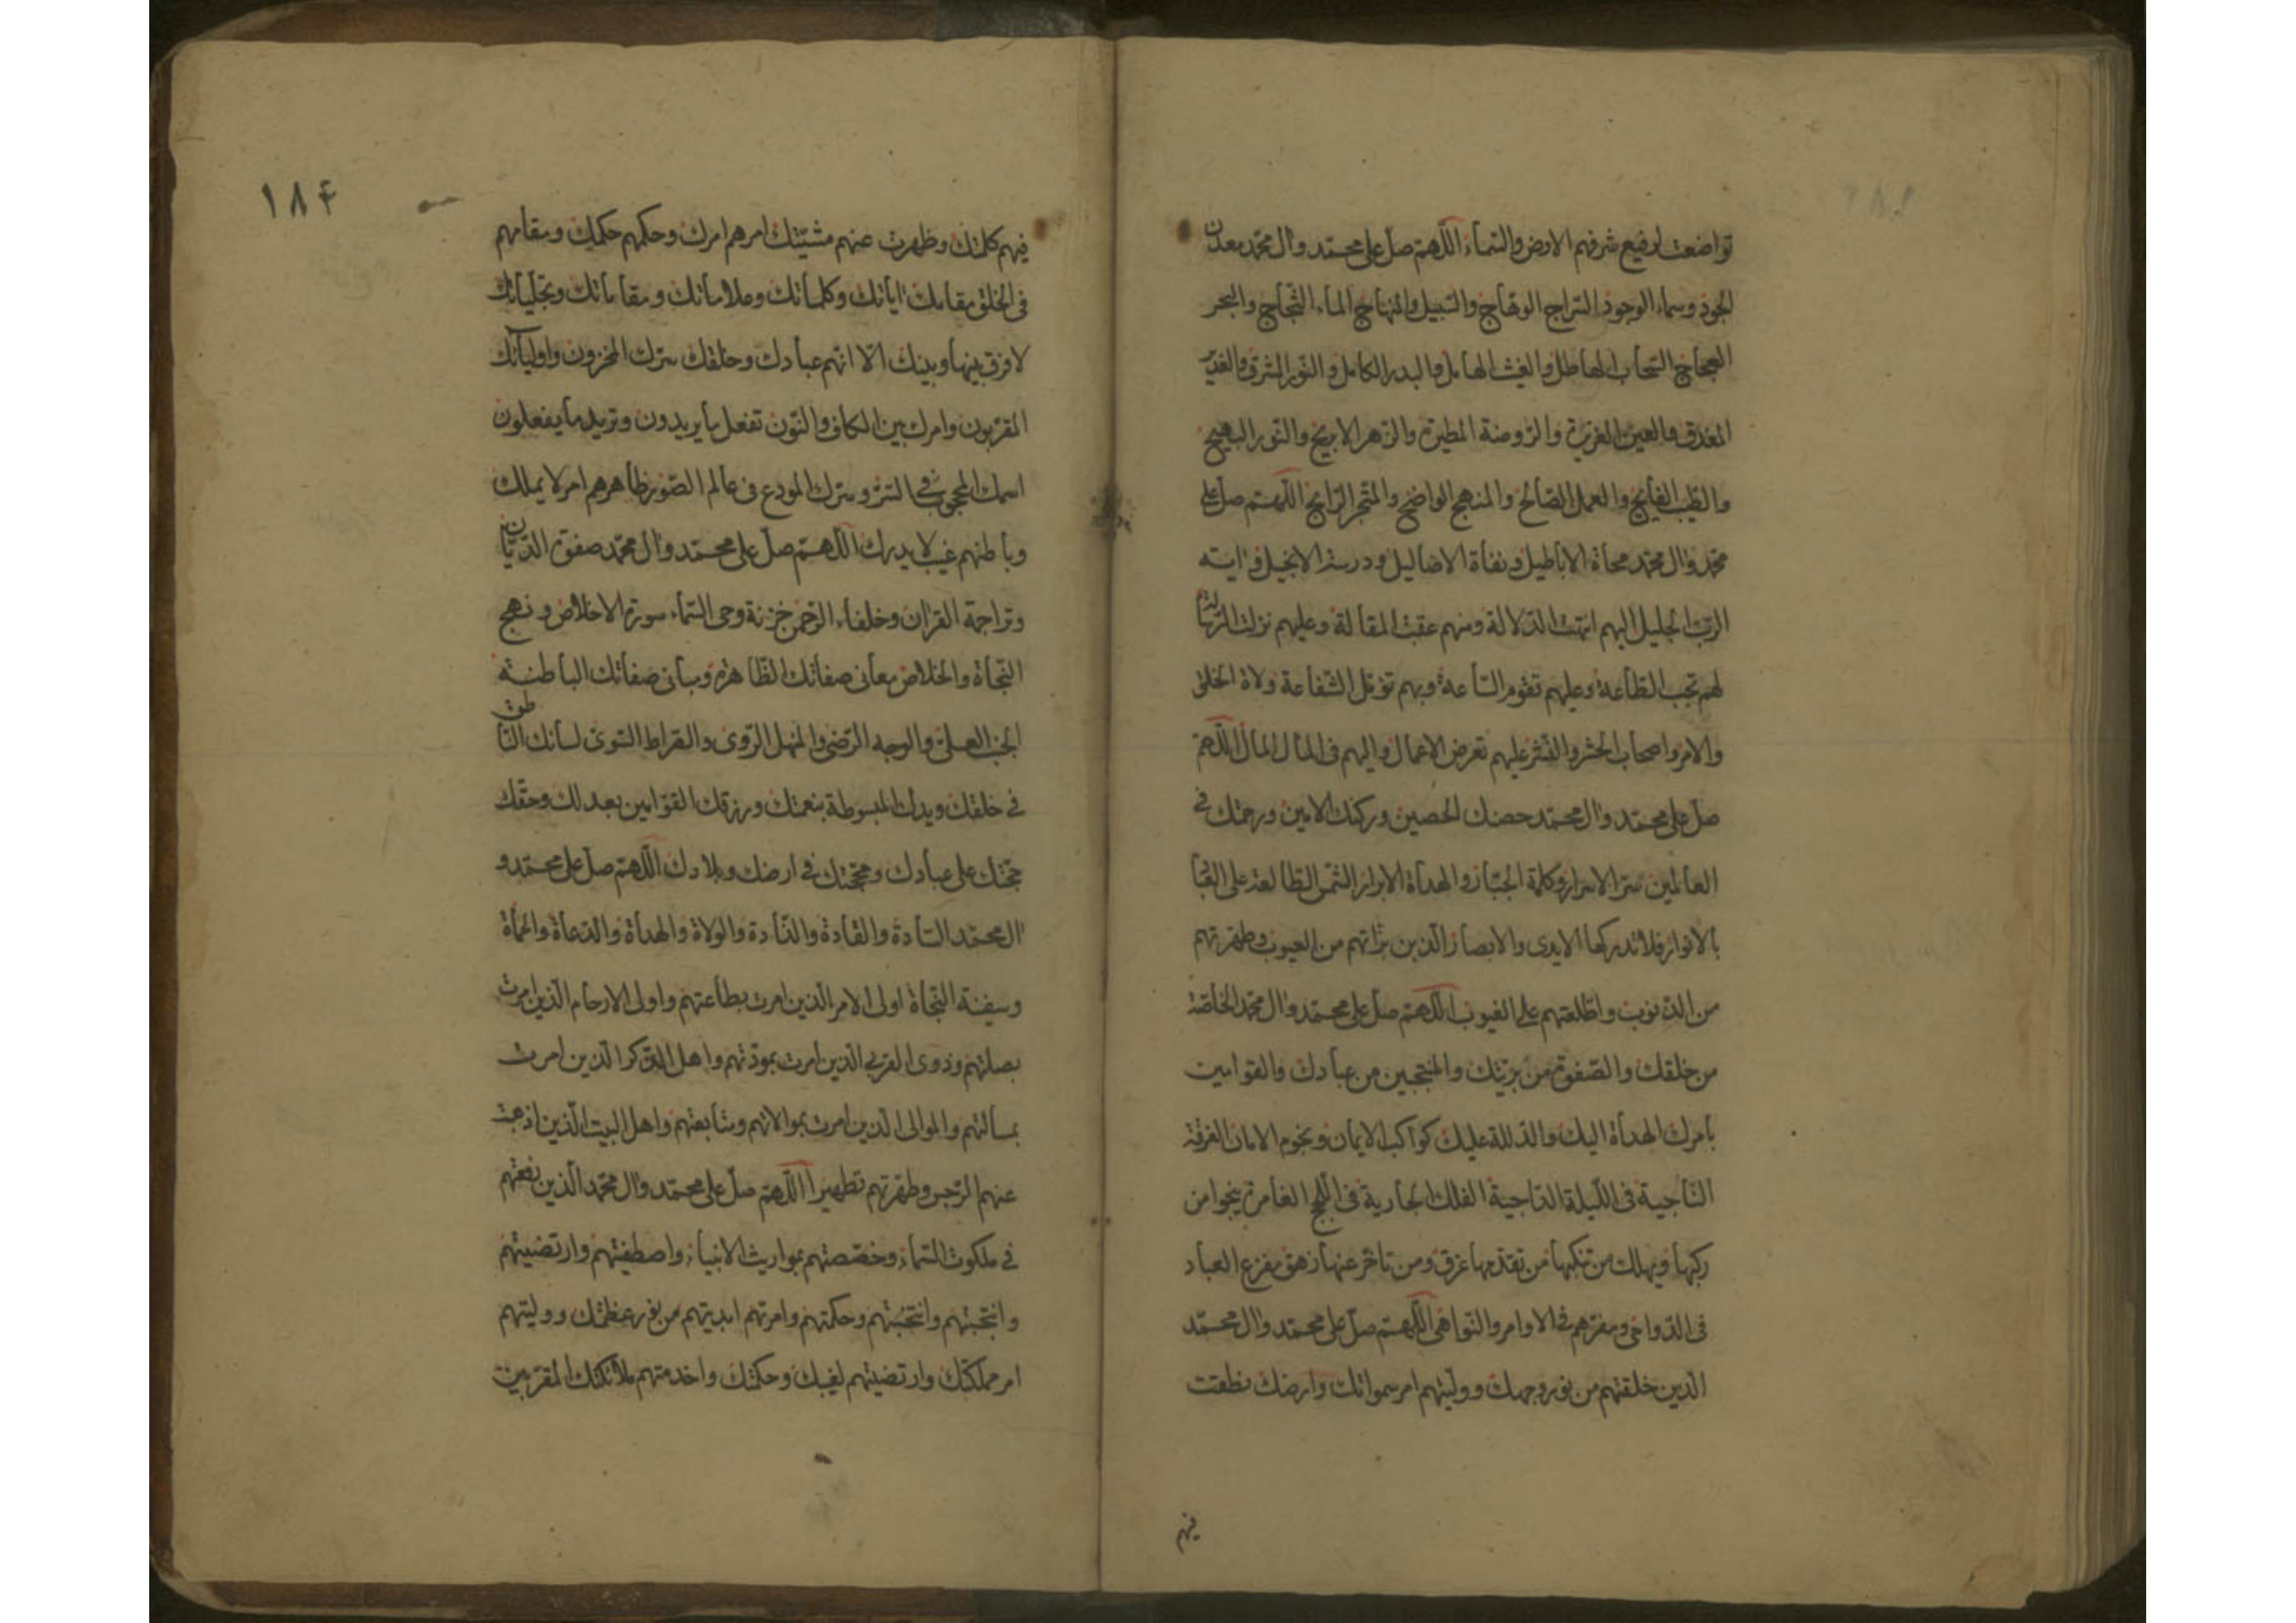 تواضعت لرفيع شرفهم الارض والسّماء اللّهمّ صلّ على محمّد وال محمّد معدن
الجود وسماء الوجود السّراج الوهّاج والسّبيل والمنهاج الماء الثّجّاج والبحر
العجاج السّحاب الهاطل والغيث الهامل والبدر الكامل والنّور المشرق والغدير
المغدق والعين الغزيرة والرّوضة المطيرة والزّهر الاريج والنّور البهيج
والطّيب الفايح والعمل الصّالح والمنهج الواضح والمتّجر الرّابح اللّهمّ صلّ على
محمّد وال محمّد محاة الاباطيل ونفاة الاضاليل ودرسة الانجيل واية
الربّ الجليل اليهم انتهت الدّلالة ومنهم عقبت المقالة وعليهم نزلت الرّسالة
لهم تجب الطّاعة وعليهم تقوم السّاعة وبهم تؤمّل الشّفاعة ولاة الخلق
والامر واصحاب الحشر والنّشر عليهم تعرض الاعمال واليهم فى المأل المال اللّهمّ
صلّ على محمّد وال محمّد حصنك الحصين وركنك الامين ورحمتك فى
العالمين سرّ الاسرار وكلمة الجبّار والهداة الابرار الشّمس الطّالعة على
بالانوار فلا تدركها الايدى والابصار الّذين برّاتهم من العيوب وطهّرتهم
من الذّنوب واطّلعتهم على الغيوب اللّهمّ صلّ على محمّد وال محمّد الخاصّة
من خلقك والصّفوة من بريّتك والمنتجبين من عبادك والقوامين
بامرك الهداة اليك والدّلالة عليك كواكب الايمان ونجوم الامان الفرقة
النّاجية فى اللّيلة الدّاجية الفلك الجارية فى اللّجج الغامرة ينجوا من
ركبها ويهلك من تنكبها من تقدّمها غرق ومن تاخّر عنها زهق مفزع العباد
فى الدّواهى ومفرّهم فى الاوامر والنّواهى اللّهمّ صلّ على محمّد وال محمّد
الّذين خلقتهم من نور وجهك وولّيتهم امر سمواتك وارضك نطقت
فيهم
١٨٤
فيهم كلمتك وظهرت عنهم مشيّتك امرهم امرك وحكمهم حكمك ومقامهم
فى الخلق مقامك اياتك وكلماتك وعلاماتك ومقاماتك وتجلّياتك
لا فرق بينها وبينك الّا انّهم عبادك وخلقك سرّك المخزون واولياءك
المقرّبون وامرك بين الكاف والنّون تفعل ما يريدون وتريد ما يفعلون
اسمك المحجوب فى السّرّ وسرّك المودع فى عالم الصّور ظاهرهم امر لا يملك
وباطنهم غيب لا يدرك اللّهمّ صلّ على محمّد وال محمّد صفوة الدّيّان
وتراجمة القران وخلفاء الرّحمن خزنة وحى السّماء سورة الاخلاص ونهج
النّجاة والخلاص معانى صفاتك الظّاهرة ومبانى صفاتك الباطنة
الجنب العلىّ والوجه الرّضى والمنهل الرّوى والصّراط السّوىّ لسانك النّاطق
فى خلقك ويدك المبسوطة بنعمتك ورزقك القوّامين بعدلك وحقّك
حججك على عبادك ومحجّتك فى ارضك وبلادك اللّهمّ صلّ على محمّد و
ال محمّد السّادة والقادة والذّادة والولاة والهداة والدّعاة والحماة
وسفينة النّجاة اولى الامر الّذين امرت بطاعتهم واولى الارحام الّذين امرت
بصلتهم وذوى القربى الّذين امرت بمودّتهم واهل الذّكر الّذين امرت
بمسألتهم والموالى الّذين امرت بموالاتهم ومتابعتهم واهل البيت الّذين اذهبت
عنهم الرّجس وطهّرتهم تطهيرا اللّهمّ صلّ على محمّد وال محمّد الّذين رفعتهم
فى ملكوت السّماء وخصّصتهم بمواريث الانبياء واصطفيتهم وارتضيتهم
وانتجبتهم وانتخبتهم وحكمتهم وامرتهم ابديتهم من نور عظمتك وولّيتهم
امر مملكتك وارتضيتهم لغيبك وحكمتك واخدمتهم ملائكتك المقرّبين